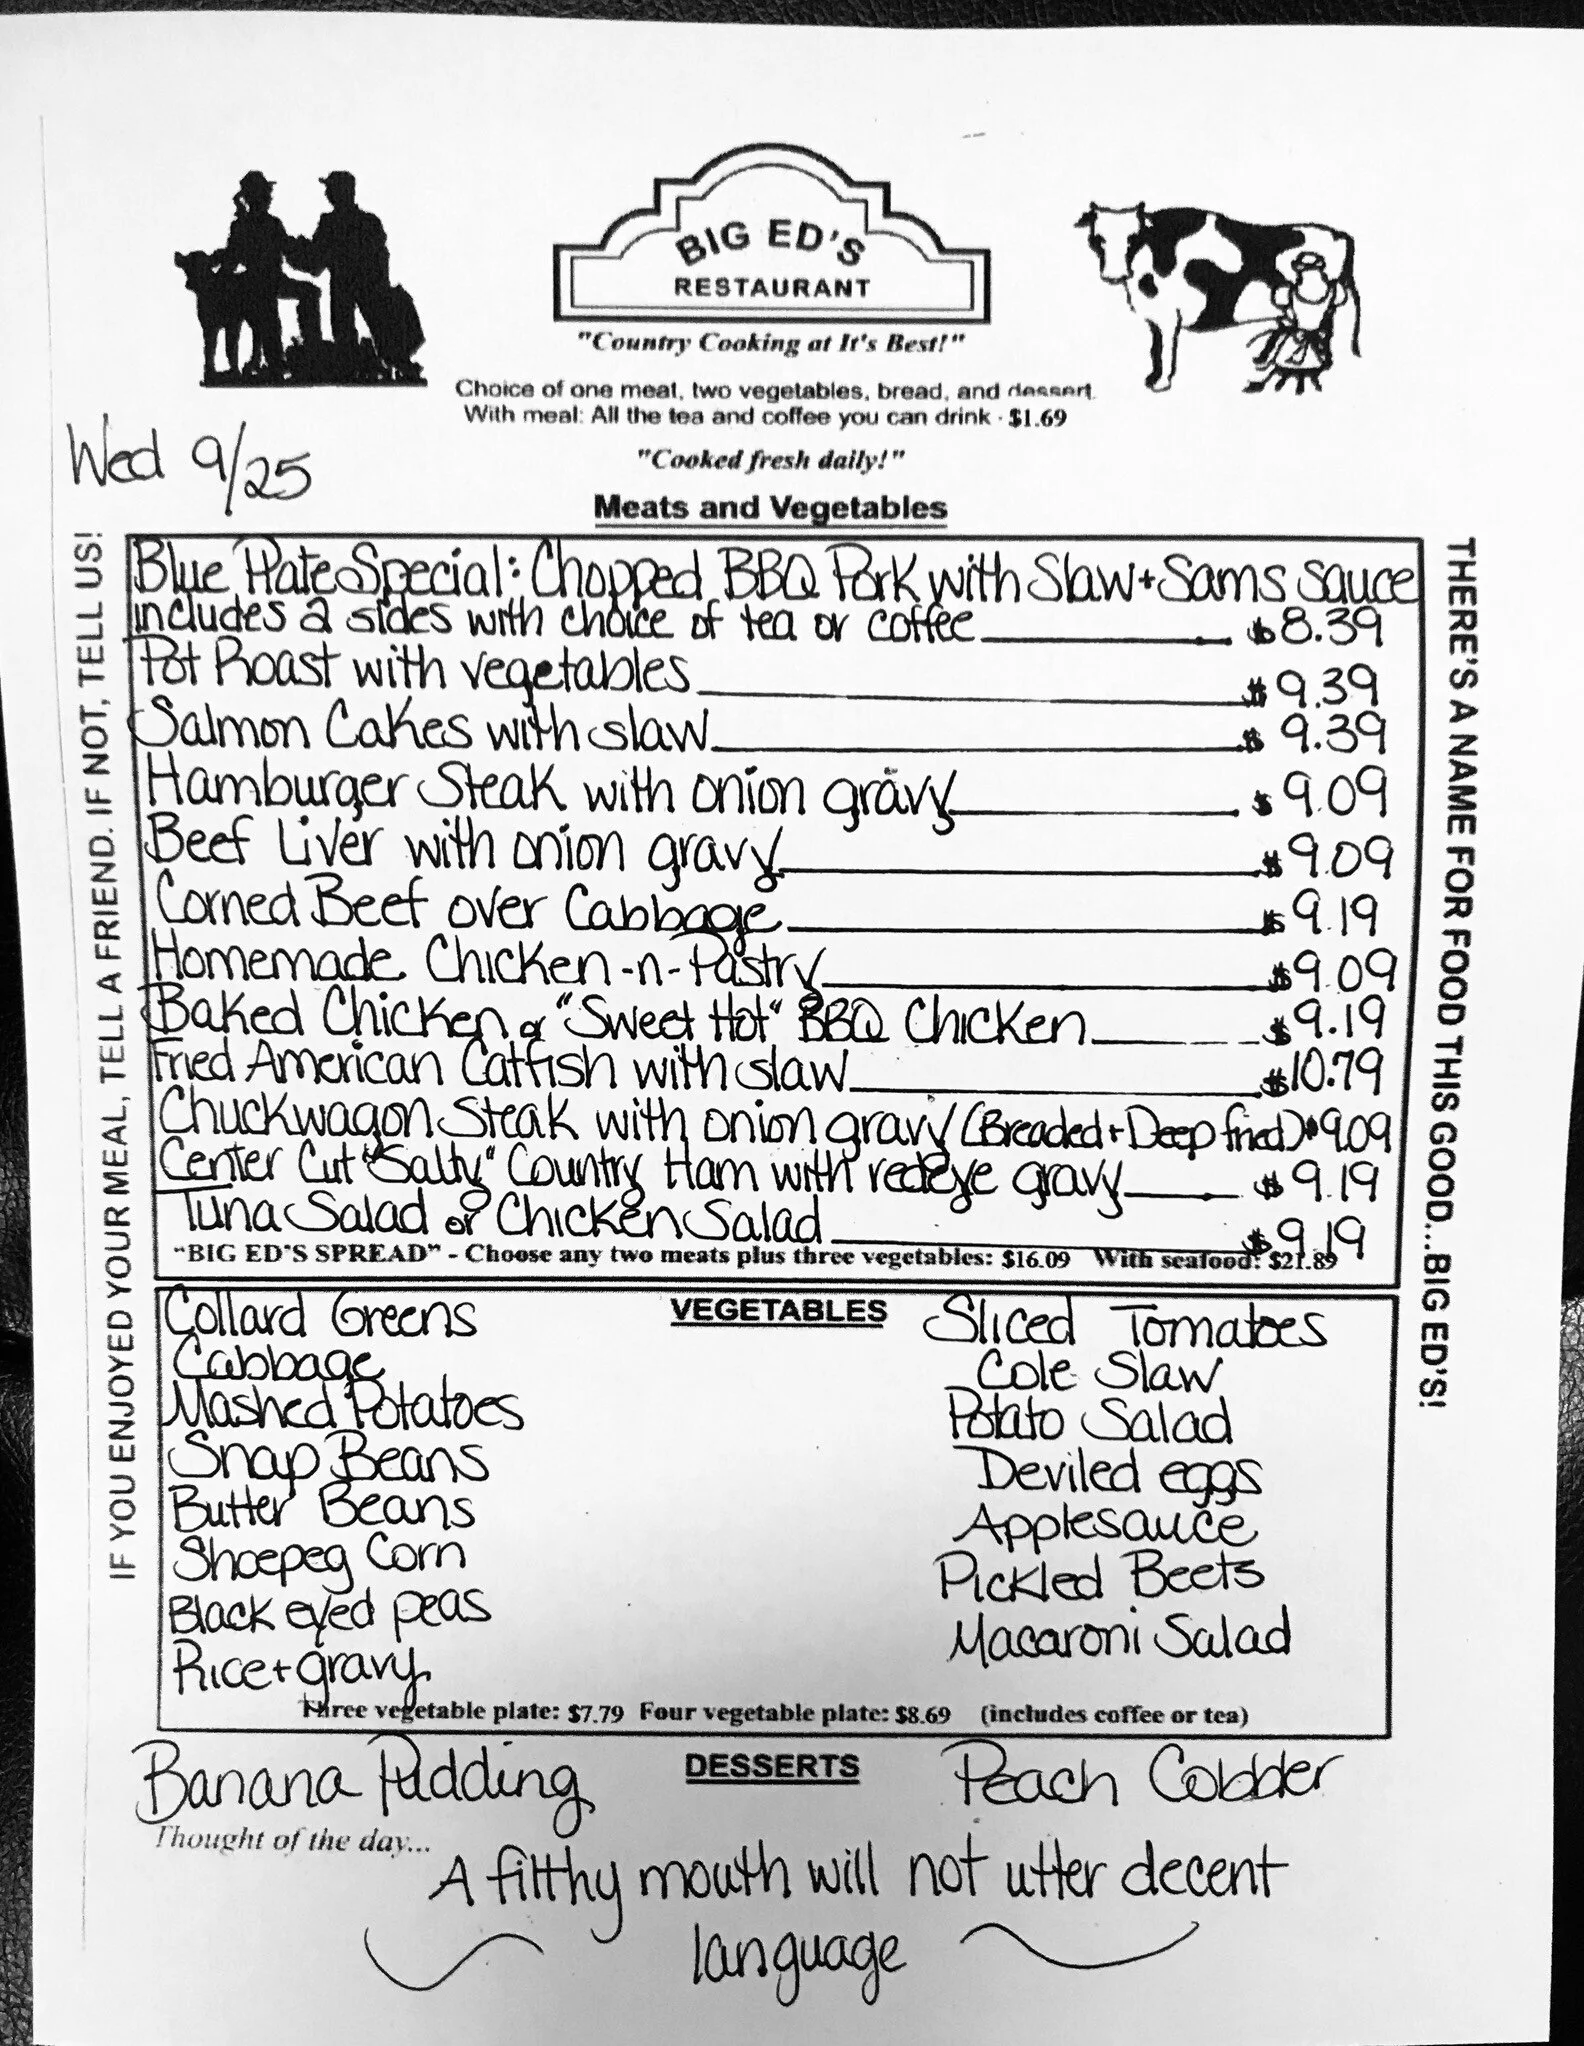 BIG ED'S
RESTAURANT
"Country Cooking at It's Best!"
Choice of one meat, two vegetables, bread, and dessert.
With meal: All the tea and coffee you can drink - $1.69
Wed 9/25
"Cooked fresh daily!"
Meats and Vegetables
Blue Plate Special: Chopped BBQ Pork with Slaw + Sams sauce
includes 2 sides with choice of tea or coffee $8.39
Pot Roast with vegetables $9.39
Salmon Cakes with slaw $9.39
Hamburger Steak with onion gravy $9.09
Beef Liver with onion gravy $9.09
Corned Beef over Cabbage $9.19
Homemade Chicken-n-Pastry $9.09
Baked Chicken or "Sweet Hot" BBQ Chicken $9.19
Fried American Catfish with slaw $10.79
Chuckwagon Steak with onion gravy (Breaded + Deep fried) $9.09
Center Cut "Salty" Country Ham with redeye gravy $9.19
Tuna Salad or Chicken Salad $9.19
"BIG ED'S SPREAD" - Choose any two meats plus three vegetables: $16.09 With seafood: $21.89
VEGETABLES
Collard Greens
Cabbage
Mashed Potatoes
Snap Beans
Butter Beans
Shoepeg Corn
Black eyed peas
Rice + gravy
Sliced Tomatoes
Cole Slaw
Potato Salad
Deviled eggs
Applesauce
Pickled Beets
Macaroni Salad
Three vegetable plate: $7.79 Four vegetable plate: $8.69 (includes coffee or tea)
DESSERTS
Banana Pudding
Peach Cobbler
Thought of the day...
A filthy mouth will not utter decent
language
IF YOU ENJOYED YOUR MEAL, TELL A FRIEND. IF NOT, TELL US!
THERE'S A NAME FOR FOOD THIS GOOD...BIG ED'S!